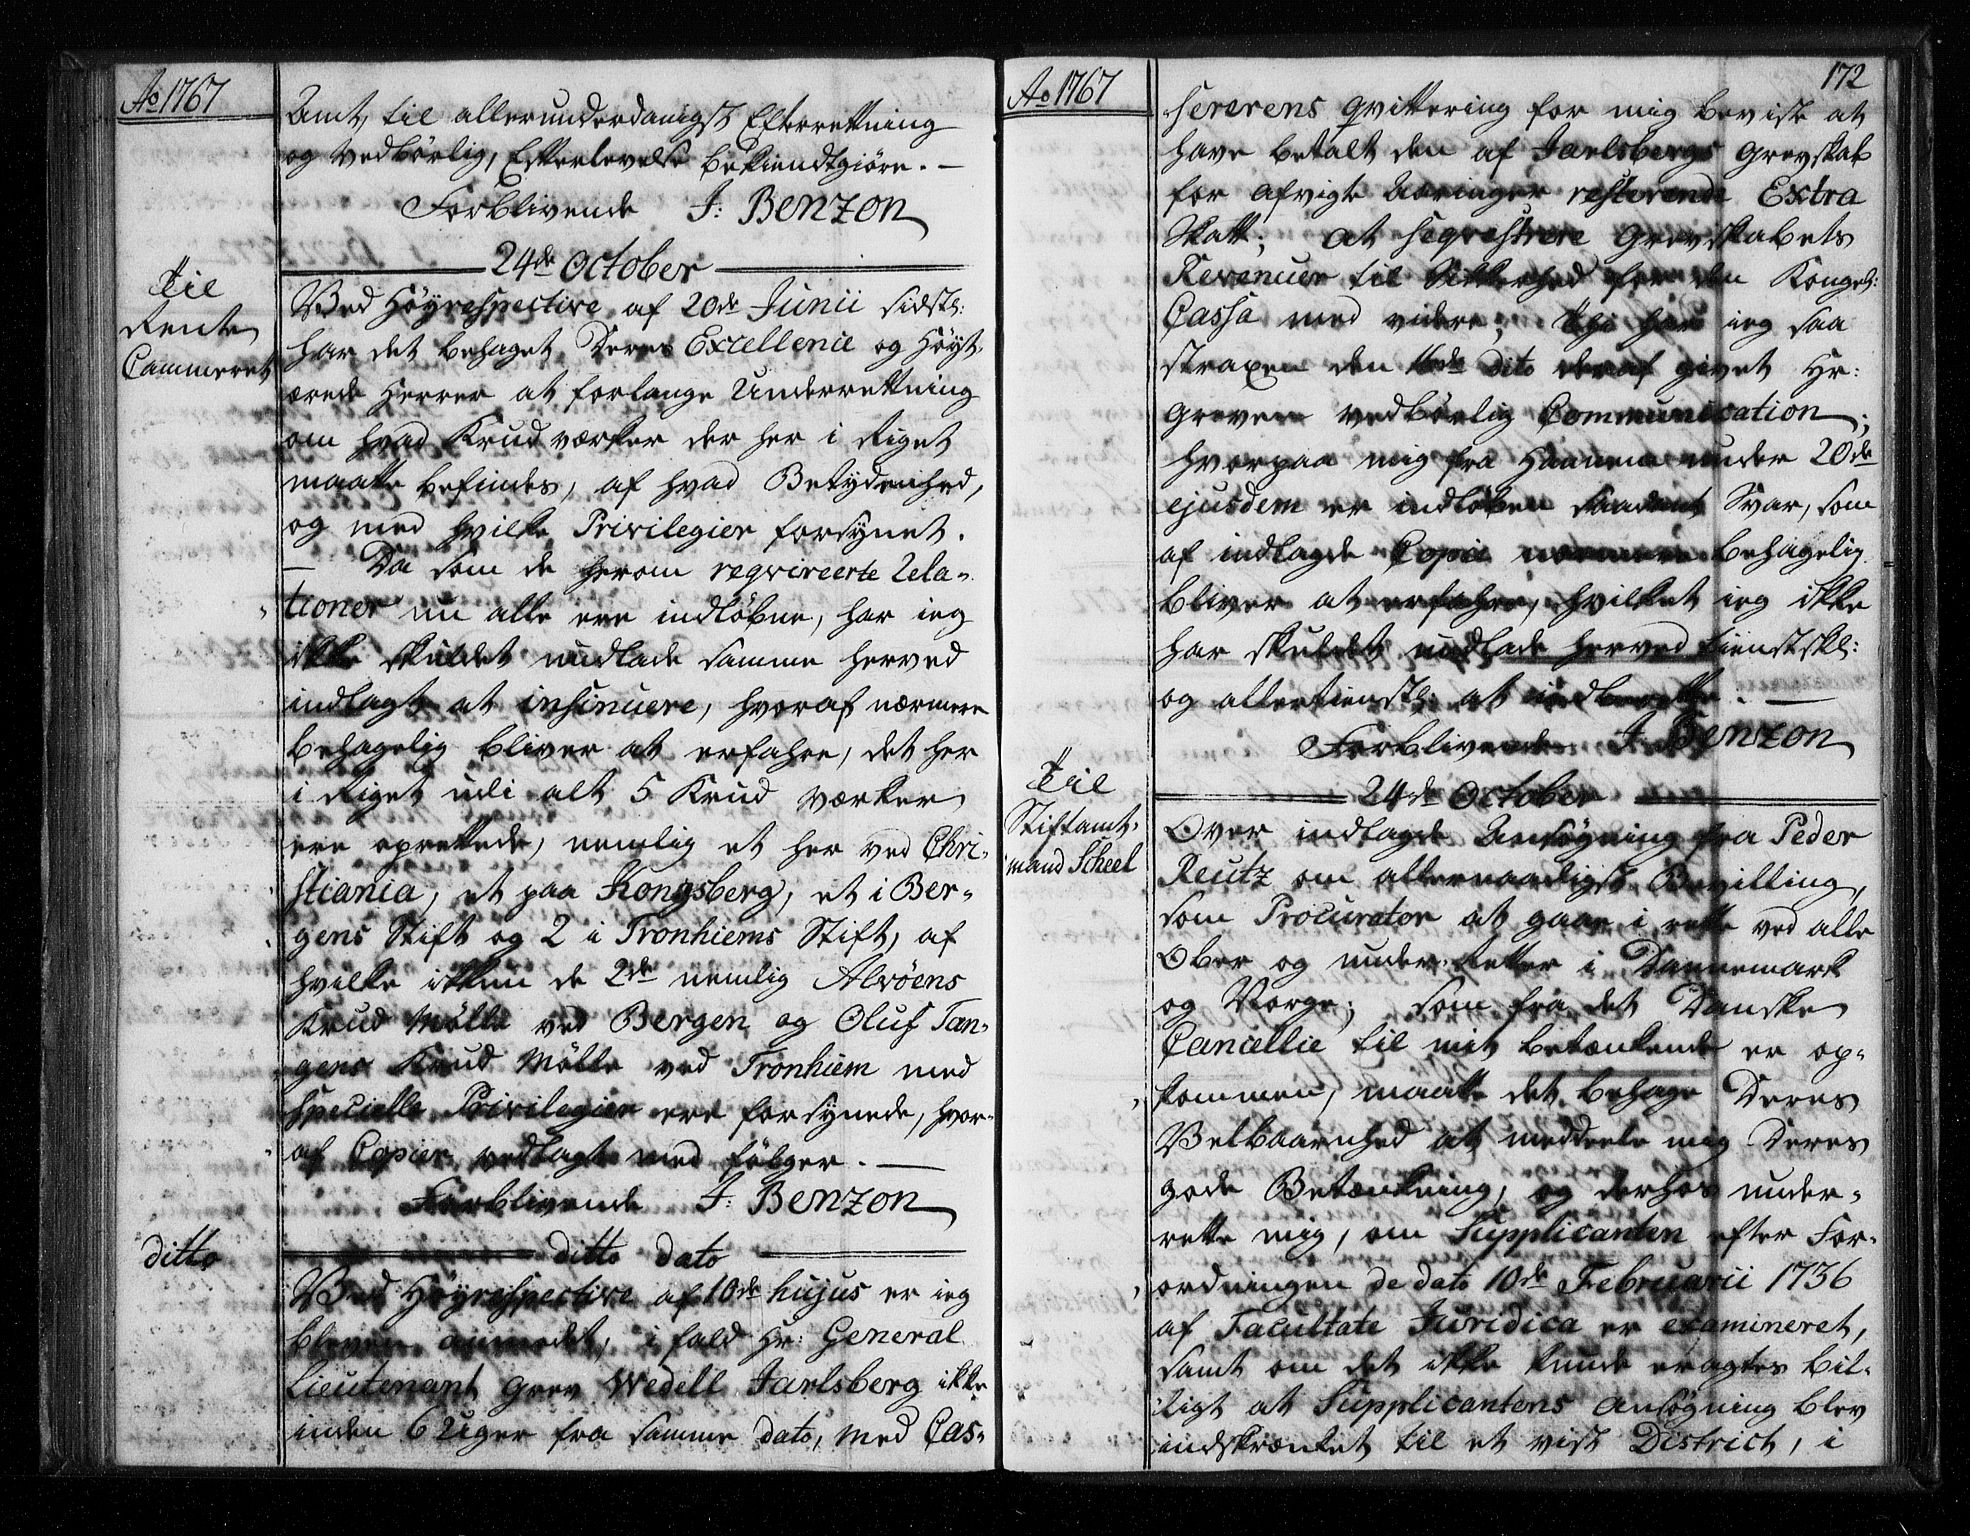 Ao 1767
Amt, til allerunderdanigst Efterretning
og vedbörlig, Efterlevelse bekiendtgiöre. —
Forblivende J: Benzon
24de October
Til
Rente
Cammeret
Ved Höyrespective af 20de Junii sidstl:
har det behaget Deres Excellence og Höyt,
ærede Herrer at forlange Underretning
om hvad Krudværker der her i Riget
maatte befindes, af hvad Betydenhed,
og med hvilke Privilegier forsynet.
— Da som de herom reqvireerte Rela-
tioner nu alle ere indlöbne, har ieg
ikke skuldet undlade samme herved
indlagt at insinuere, hvoraf nærmere
behagelig bliver at erfahre, det her
i Riget udi alt 5 Krud værker
ere oprettede, nemlig et her ved Chri-
stiania, et paa Kongsberg, et i Ber-
gens Stift og 2 i Tronhiems Stift, af
hvilke ikkun de 2de nemlig Alvöens
Krud Mölle ved Bergen og Oluf Tan-
gens Krud Mölle ved Tronhiem med
specielle Privilegier ere forsynede, hvor-
af Copier vedlagt med fölger. —
Forblivende J: Benzon
ditto
ditto dato
Ved Höyrespective af 10de hujus er ieg
bleven anmodet, i fald Hr: General
Lieutenant Grev Wedell Jarlsberg ikke
inden 6 Uger fra samme dato, med Cas-
Ao 1767
172
sererens Qvittering for mig beviste at
have betalt den af Jarlsbergs Grevskab
for afvigte Aaringer resterende Extra
Skatt; at seqvestrere Grevskabets
Revenuer til Sikkerhed for den Kongel:
Cassa med videre; Thi har ieg saa
strax den 16de dito deraf givet Hr:
Greven vedbörlig Communication;
hvorpaa mig fra Hannem under 20de
ejusdem er indlöben saadant Svar, som
af indlagde Copie nærmere behagelig
bliver at erfahre, hvilket ieg ikke
har skuldet undlade herved tienstskl:
og allertienstl: at indberette. —
Forblivende J. Benzon
24de October
Til
Stiftamt-
mand Scheel
Over indlagde Ansögning fra Peder
Reutz om allernaadigst Bevilling,
som Procurator at gaae i rette ved alle
Ober og under Retter i Dannemark
og Norge; som fra det Danske
Cancellie til mit betænkende er op-
kommen, maatte det behage Deres
Velbaarnhed at meddeele mig Deres
gode Betænkning, og derhos under-
rette mig, om Supplicanten efter For-
ordningen de dato 10de Februarii 1736
af Facultate Juridica er examineret,
samt om det ikke kunde eragtes bil-
ligt at Supplicantens Ansögning blev
indskrænket til et vist District, i